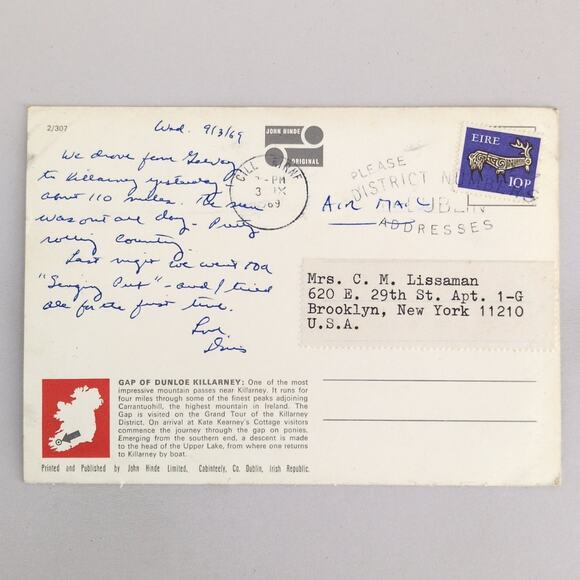 2/307
Wed. 9/3/69
We drove from Galway
to Killarney yesterday
about 110 miles. The sun
was out all day. Pretty
rolling country.
Last night we went to a
"Singing Pub" - and I tried
ale for the first time.
Love
Doris
JOHN HINDE
ORIGINAL
CILL AIRNE
-PM
3 IX
69
PLEASE
DISTRICT
DUBLIN
ADDRESSES
EIRE
10P
AIR MAIL
Mrs. C. M. Lissaman
620 E. 29th St. Apt. 1-G
Brooklyn, New York 11210
U.S.A.
GAP OF DUNLOE KILLARNEY: One of the most
impressive mountain passes near Killarney. It runs for
four miles through some of the finest peaks adjoining
Carrantuohill, the highest mountain in Ireland. The
Gap is visited on the Grand Tour of the Killarney
District. On arrival at Kate Kearney's Cottage visitors
commence the journey through the gap on ponies.
Emerging from the southern end, a descent is made
to the head of the Upper Lake, from where one returns
to Killarney by boat.
Printed and Published by John Hinde Limited, Cabinteely, Co. Dublin, Irish Republic.